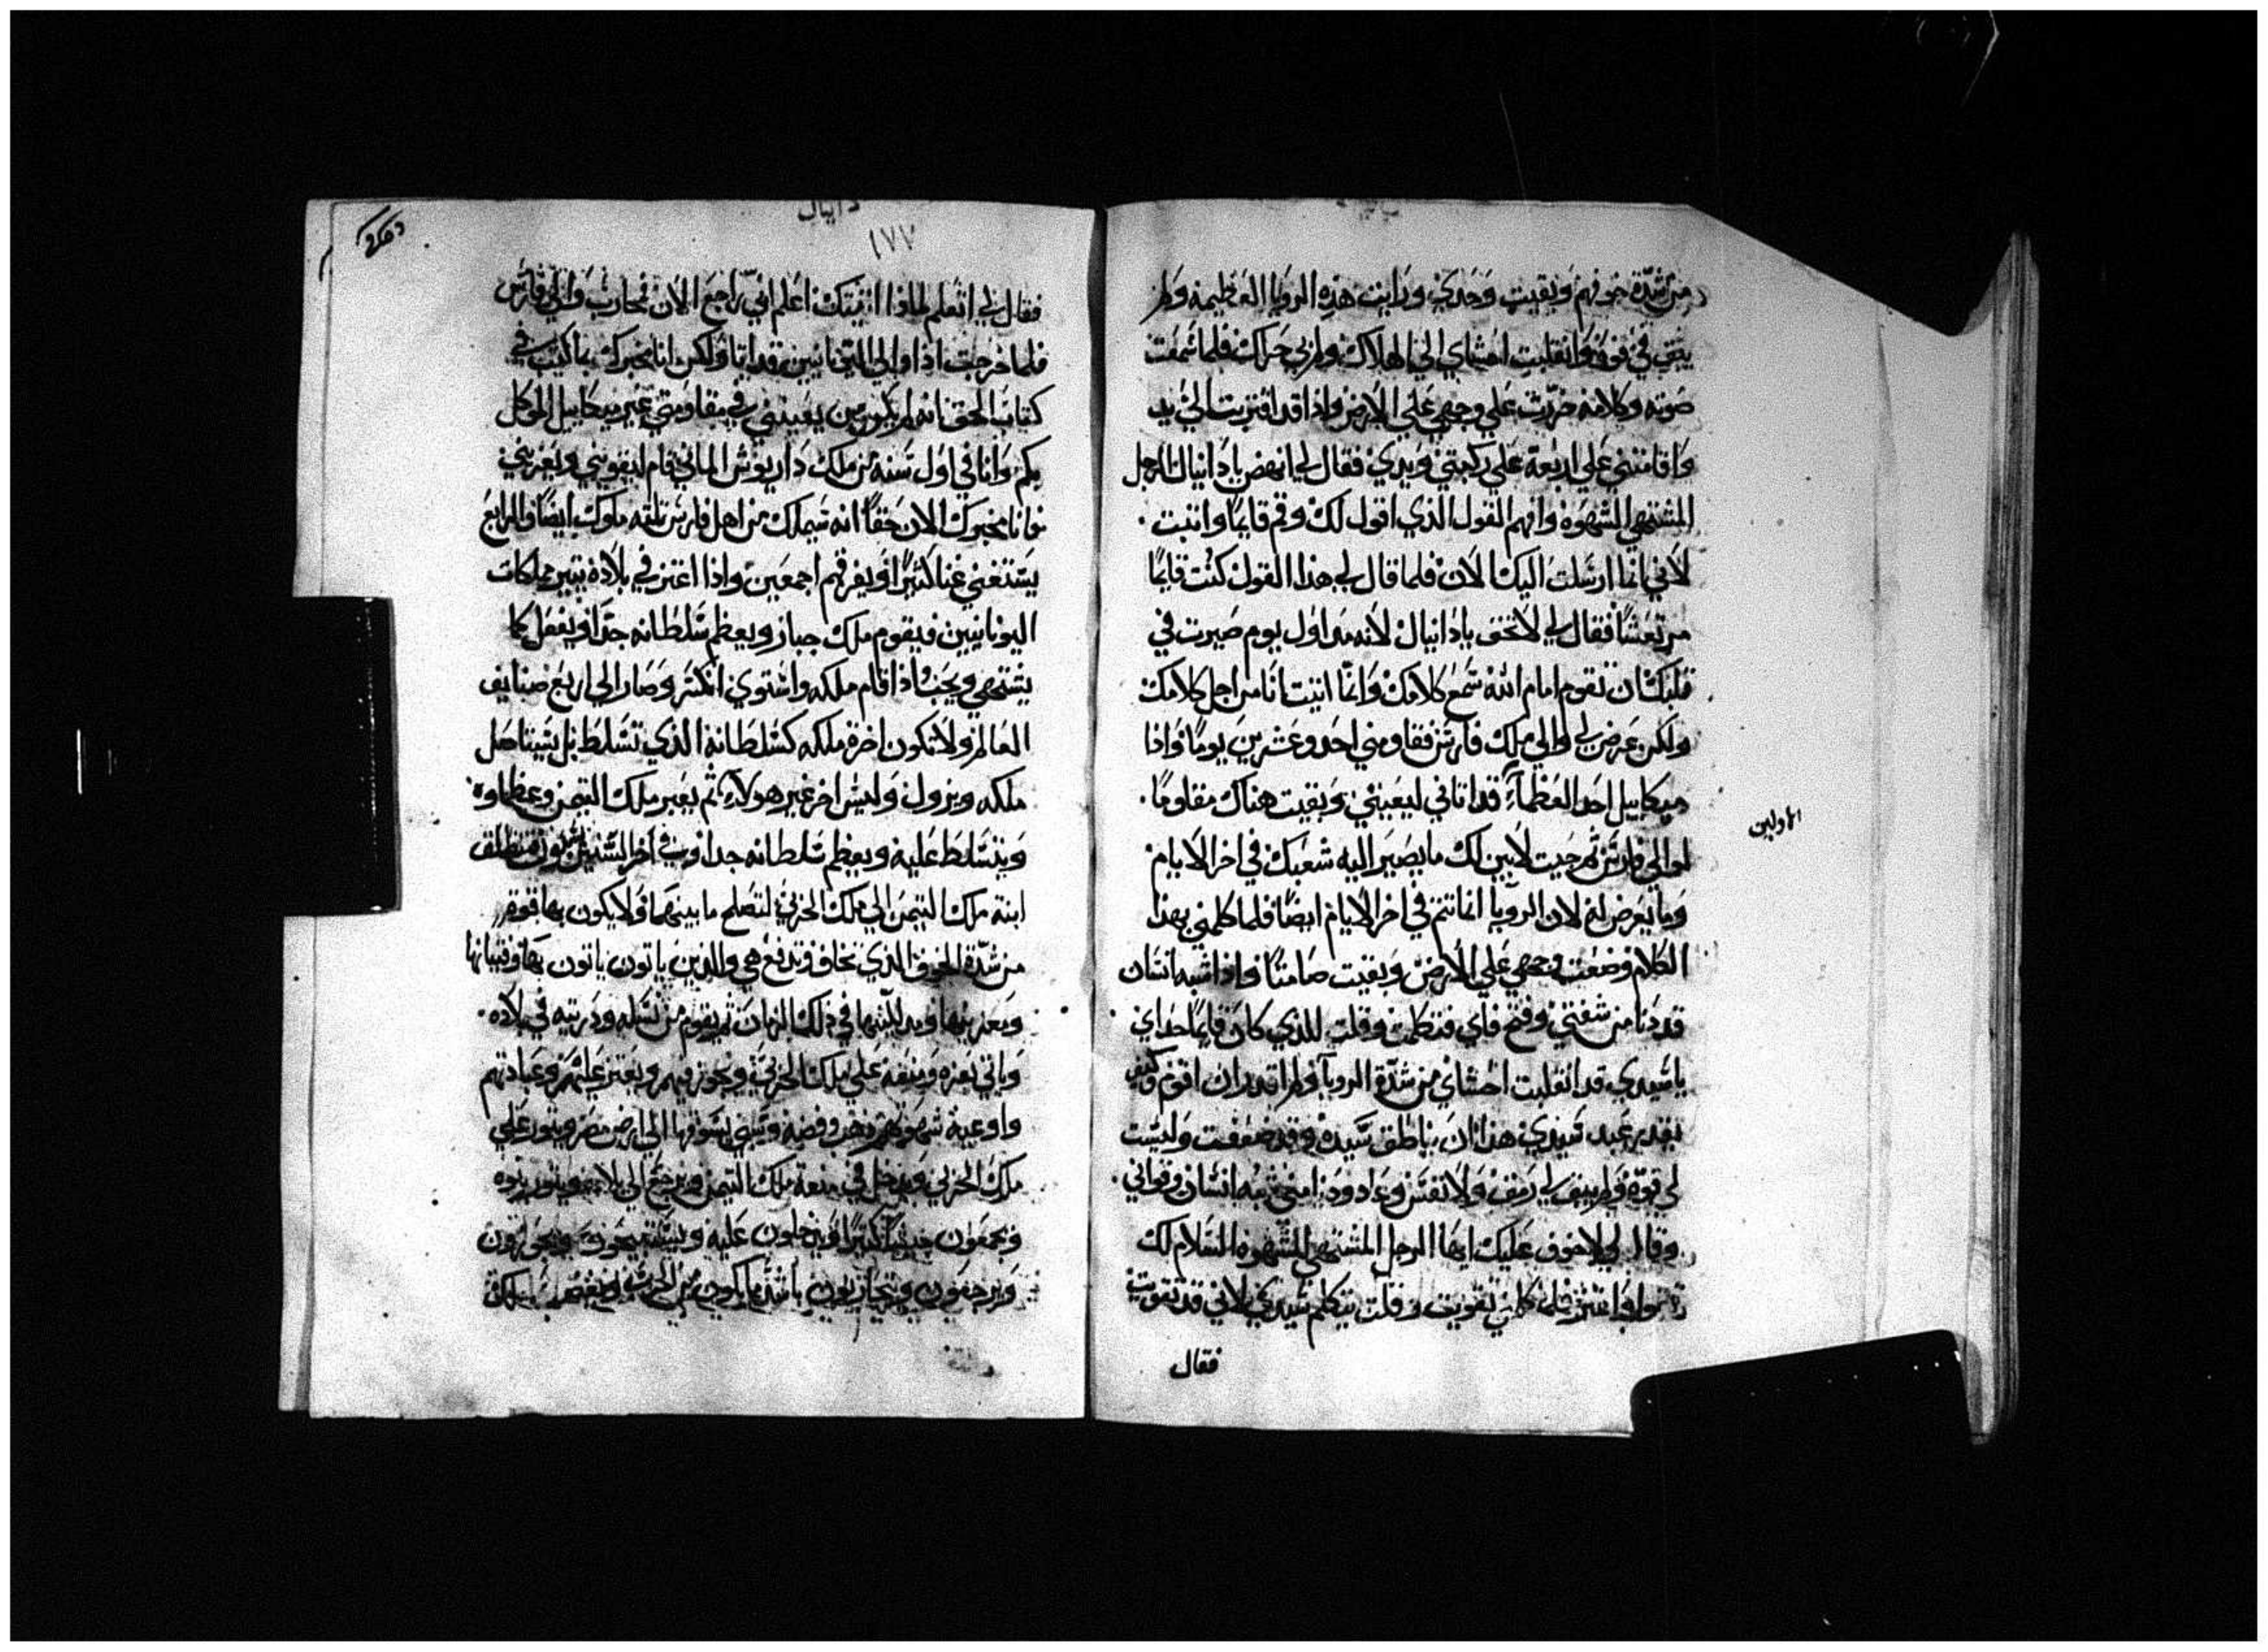 من شدة خوفهم وبقيت وحدي ورايت هذه الرويا العظيمه ولم
يبق في قوة وانقلبت احشاي الي الهلاك ولم بي حراك فلما سمعت
صوته وكلامه خررت علي وجهي علي الارض واذا قد اقتربت الي يد
واقامتني علي اربعة علي ركبتي ويدي فقال لي انهض يا دانيال الرجل
المشتهي الشهوة وافهم القول الذي اقول لك وقم قايما واثبت
لاني انما ارسلت اليك الان فلما قال لي هذا القول كنت قايما
مرتعشا فقال لي لا تخف يا دانيال لانه من اول يوم صيرت في
قلبك ان تقوم امام الله سمع كلامك وانما اتيت انا من اجل كلامك
ولكن عرض لي والي ملك فارس فقاومني احد وعشرين يوما واذا
ميكاييل احد العظمآء قد اتاني ليعينني وبقيت هناك مقاوما
لوالي فارس ثم جيت لابين لك ما يصير اليه شعبك في اخر الايام
وما يعرض له لان الرويا انما تتم في اخر الايام ايضا فلما كلمني بهذا
الكلام وضعت وجهي علي الارض وبقيت صامتا واذا شبه انسان
قد دنا من شفتي وفتح فاي فتكلمت وقلت للذي كان قايما حداي
يا سيدي قد انقلبت احشاي من شدة الرويا ولم اقدر ان اقوم وكيف
يقدر عبد سيدي هذا ان يناطق سيده وقد ضعفت وليست
لي قوة ولم يبق لي رمق ولا نفس وعاد ودنا مني شبه انسان وقواني
وقال لي لا خوف عليك ايها الرجل المشتهي الشهوه السلام لك
واعتز فلما كلمني تقويت وقلت يتكلم سيدي لاني قد تقويت
فقال
الاولين
دانيال
١٧٧
فقال لي اتعلم لماذا اتيتك اعلم اني راجع الان لمحارب والي فارس
فلما خرجت اذا والي اليونانيين قد اتا ولكن انا مخبرك بما كتب في
كتاب الحق انه لم يكن من يعينني في مقاومتي غير ميكاييل الموكل
بكم وانا في اول سنه من ملك داريوش الماني قام ليقويني ويعزيني
وانا مخبرك الان حقا انه سيملك من اهل فارس ثلثه ملوك ايضا والرابع
يستغني غنا كثيرا ويفرقهم اجمعين واذا اعتز في بلاده يثير مملكات
اليونانيين فيقوم ملك جبار ويعظم سلطانه جدا ويفعل كما
يشتهي ويحب واذا قام ملكه واستوي انكسر وصار الي اربع صنايف
العالم ولا تكون اخرة ملكه كسلطانه الذي تسلط بل يستاصل
ملكه ويزول وليس اخر غير هولآء ثم يعبر ملك التيمن وعظماوه
ويتسلط عليه ويعظم سلطانه جدا وفي اخر السنين فتنطلق
ابنة ملك التيمن الي ملك الجربي لتصلح ما بينهما ولا يكون بها قوة
من شدة الخوف الذي تخاف وتدفع هي والذين ياتون ياتون بها وفتيانها
في ذلك الزمان ثم يقوم من نسله وذريته في بلاده
وياتي بعزه ومنعه علي ملك الجربي ويجوز فيهم ويعتز عليهم وعبادتهم
واوعية شهوتهم ذهب وفضه وسبي يسوقها الي ارض مصر ويثور علي
ملك الجربي ويدخل في منعة ملك التيمن ويرجع الي بلاده
ويجمعون جيشا كثيرا ويدخلون عليه
ويرجعون ويتحاربون باشد ما يكون من الحرب